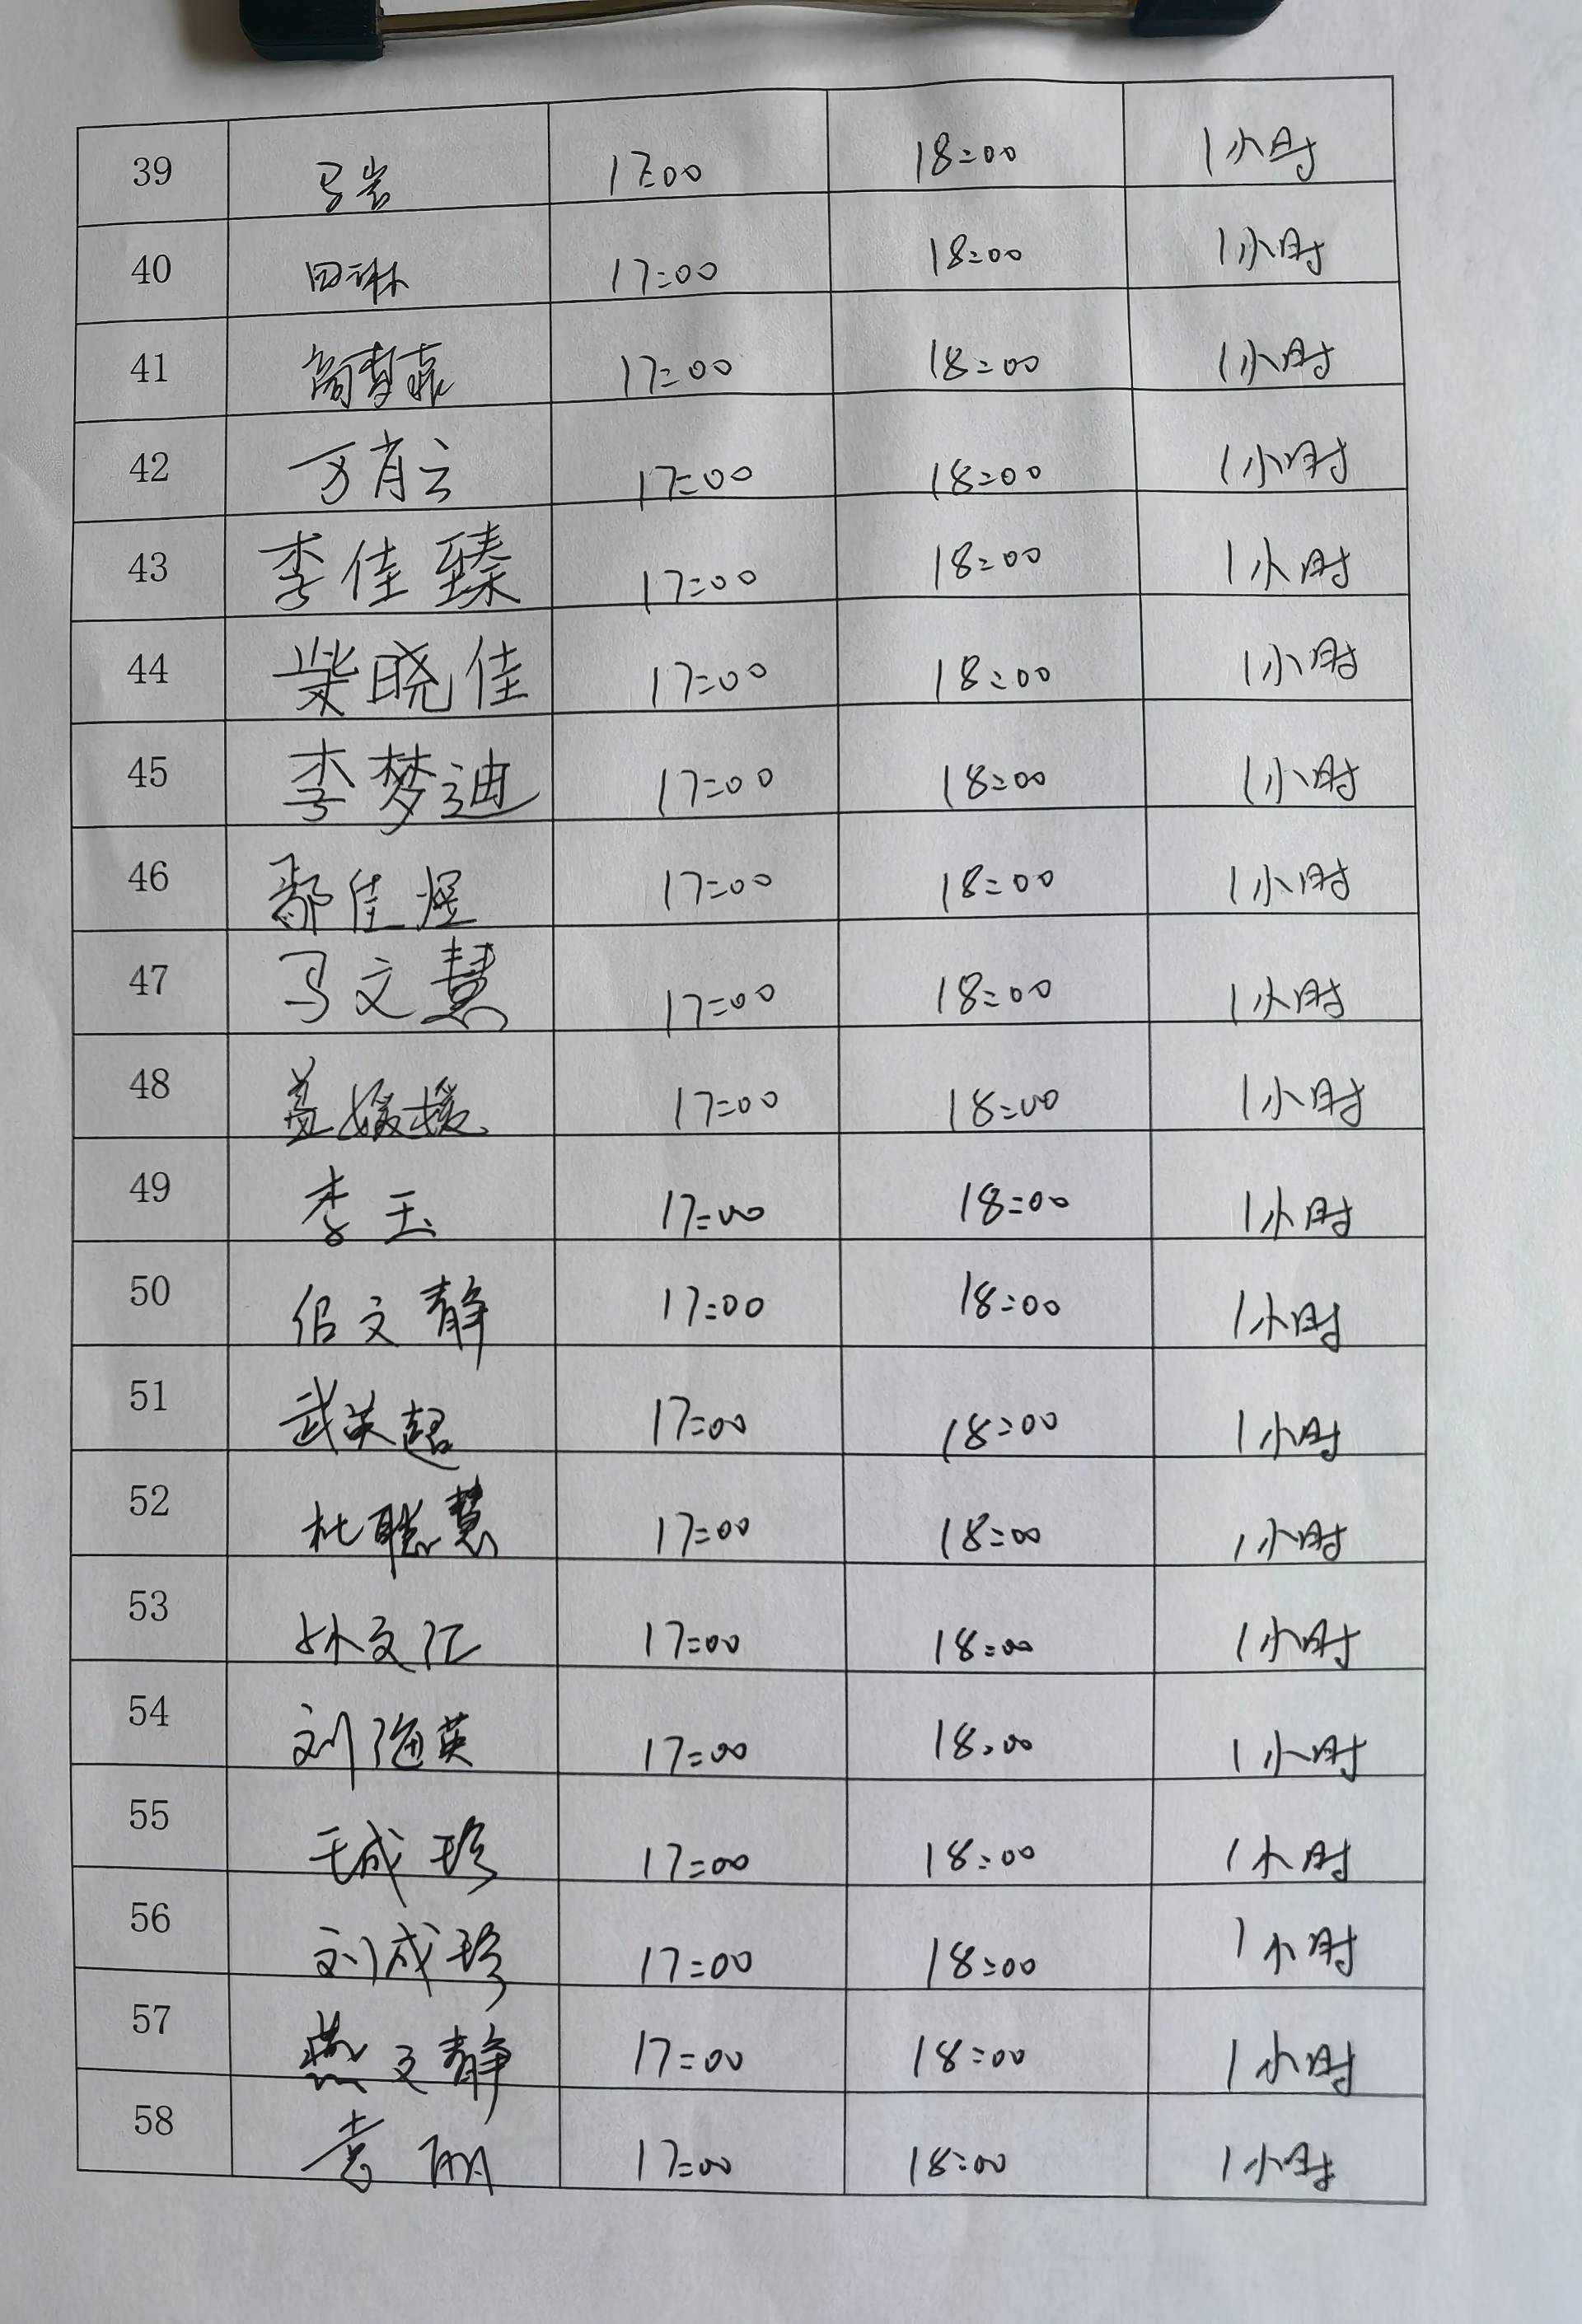 39 马岩 17:00 18:00 1小时
40 田琳 17:00 18:00 1小时
41 17:00 18:00 1小时
42 万肖云 17:00 18:00 1小时
43 李佳臻 17:00 18:00 1小时
44 柴晓佳 17:00 18:00 1小时
45 李梦迪 17:00 18:00 1小时
46 鄢佳煜 17:00 18:00 1小时
47 马文慧 17:00 18:00 1小时
48 盖媛媛 17:00 18:00 1小时
49 李玉 17:00 18:00 1小时
50 文静 17:00 18:00 1小时
51 武英超 17:00 18:00 1小时
52 杜聪慧 17:00 18:00 1小时
53 孙文汇 17:00 18:00 1小时
54 刘海英 17:00 18:00 1小时
55 王成珍 17:00 18:00 1小时
56 刘成珍 17:00 18:00 1小时
57 燕文静 17:00 18:00 1小时
58 袁丽 17:00 18:00 1小时